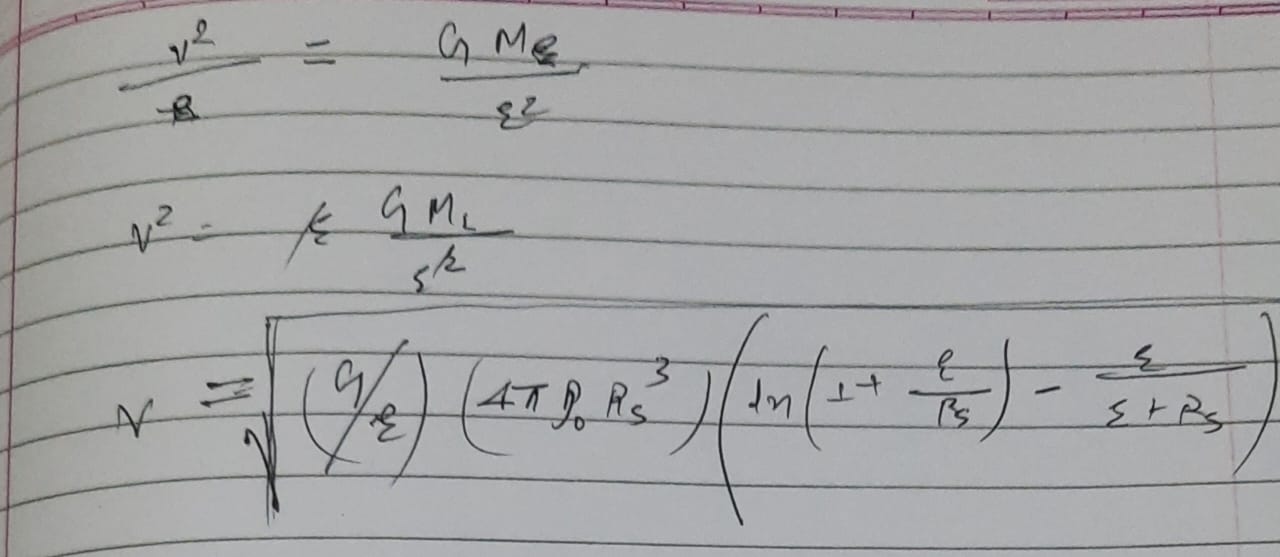 v²/r = G Mr / r²
v² = r G Mr / r²
v = √( (G/r) (4π ρ₀ Rs³) ( ln(1 + r/Rs) - r/(r + Rs) ) )